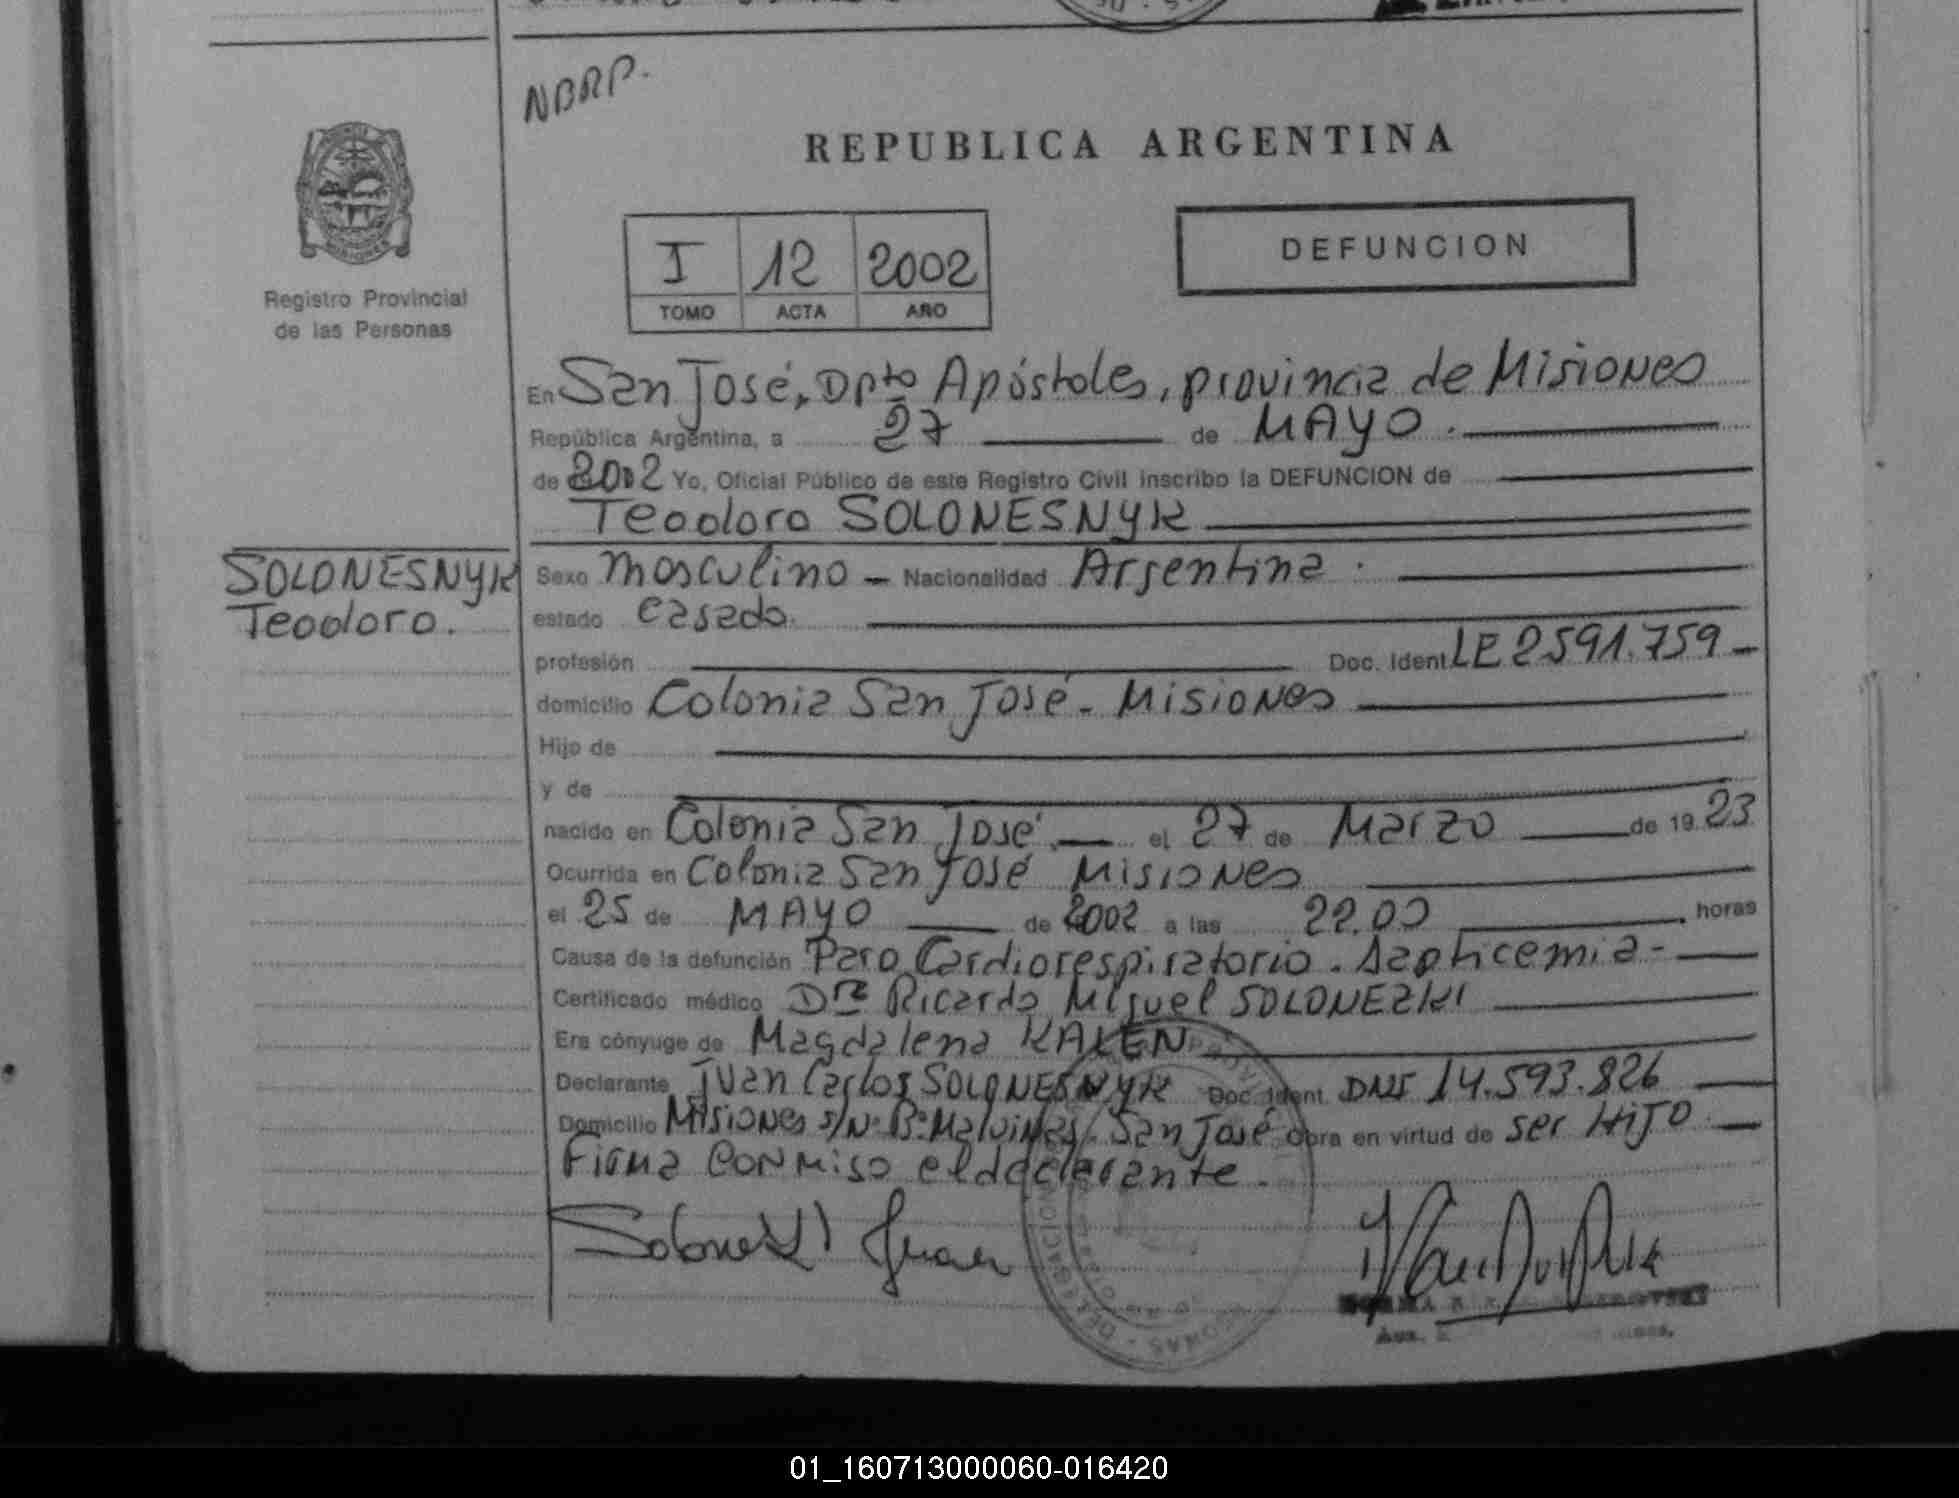 NBRP.
REPUBLICA ARGENTINA
I 12 2002
TOMO ACTA AÑO
DEFUNCION
Registro Provincial
de las Personas
En San José, Dpto Apóstoles, provincia de Misiones
República Argentina, a 27 de MAYO.
de 2002 Yo, Oficial Público de este Registro Civil inscribo la DEFUNCION de
Teodoro SOLONESNYK
SOLONESNYK
Teodoro.
Sexo masculino - Nacionalidad Argentina.
estado casado.
profesión Doc. Ident LE 2591.759-
domicilio Colonia San José - Misiones
Hijo de
y de
nacido en Colonia San José. el 27 de Marzo de 1923
Ocurrida en Colonia San José Misiones
el 25 de MAYO de 2002 a las 22.00 horas
Causa de la defunción Paro Cardiorespiratorio. Septicemia-
Certificado médico Dr Ricardo Miguel SOLONEZKI
Era cónyuge de Magdalena KALEN
Declarante Juan Carlos SOLONESNYK Doc. Ident. DNI 14.593.826
Domicilio Misiones s/Nº Bº Malvinas, San José Obra en virtud de ser HIJO
Firma conmiso el declarante.
Juan
NORMA
Aux.
01_160713000060-016420